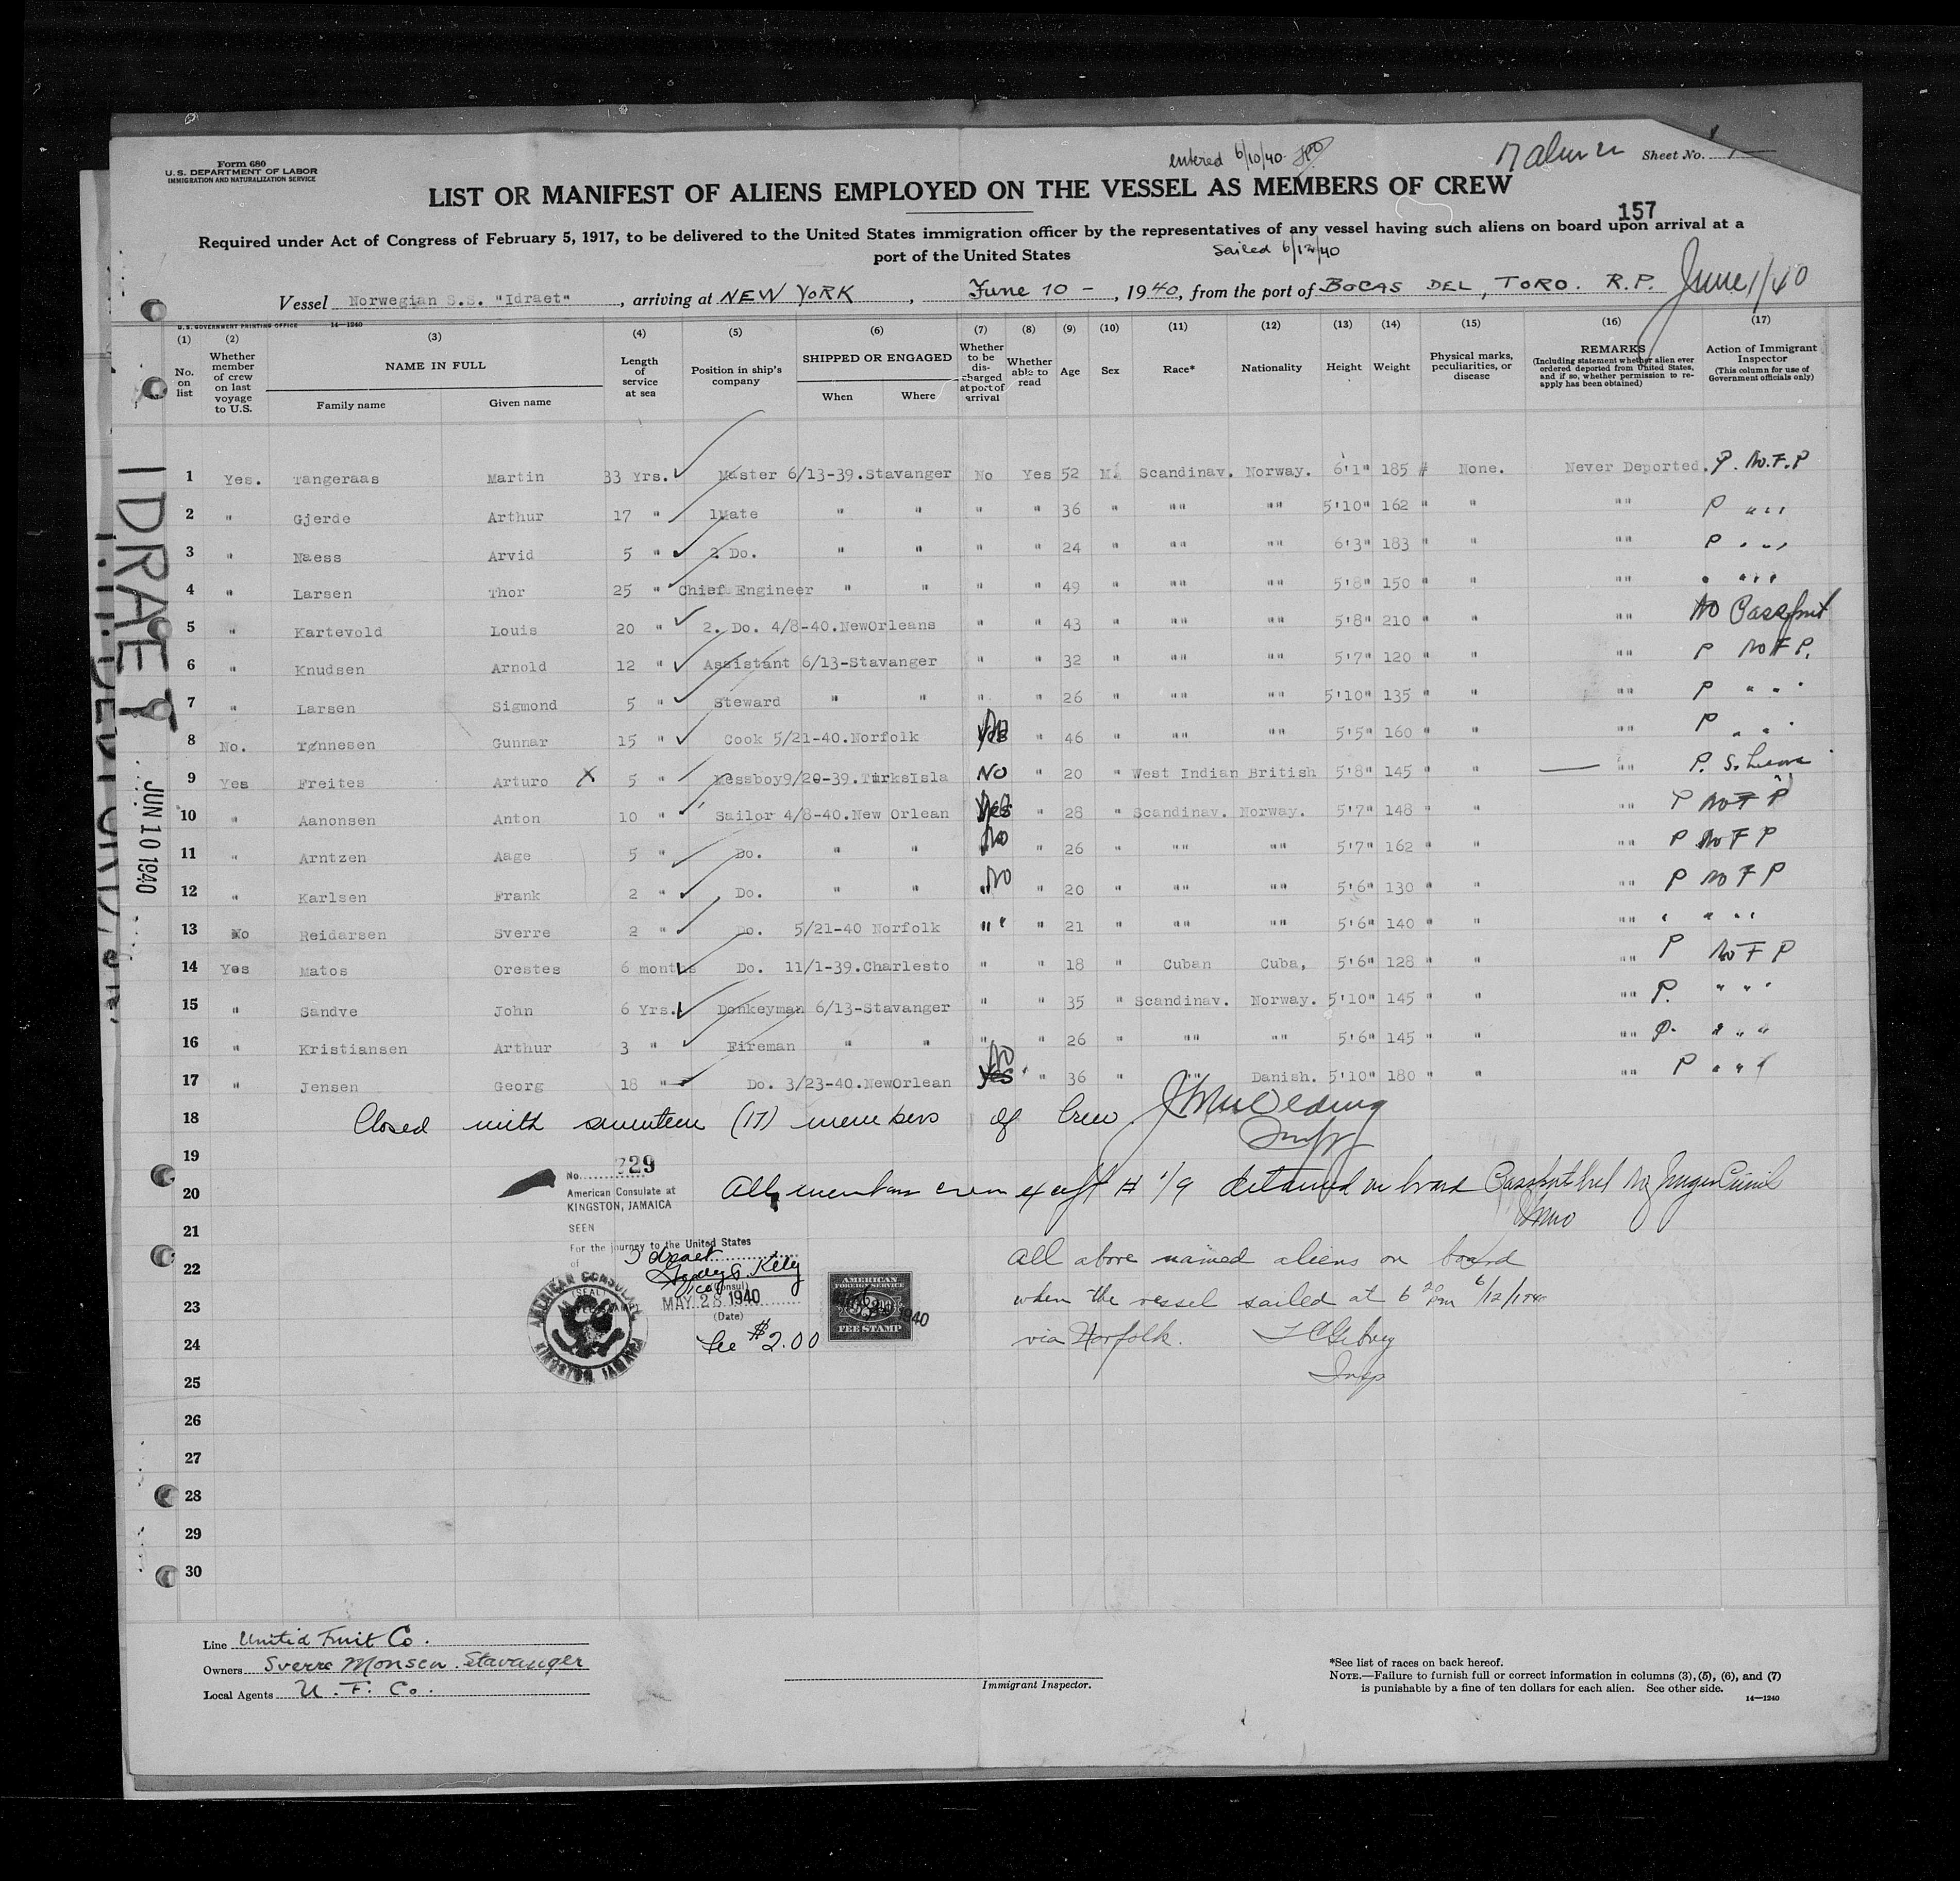 Form 680
U.S. DEPARTMENT OF LABOR
IMMIGRATION AND NATURALIZATION SERVICE
entered 6/10/40
Sheet No. 1
LIST OR MANIFEST OF ALIENS EMPLOYED ON THE VESSEL AS MEMBERS OF CREW
157
Required under Act of Congress of February 5, 1917, to be delivered to the United States immigration officer by the representatives of any vessel having such aliens on board upon arrival at a
port of the United States
Sailed 6/12/40
Vessel Norwegian S.S. "Idraet", arriving at NEW YORK, June 10 -, 1940, from the port of BOCAS DEL, TORO. R.P. June 1/40
U.S. GOVERNMENT PRINTING OFFICE 14—1240
(1) (2) (3) (4) (5) (6) (7) (8) (9) (10) (11) (12) (13) (14) (15) (16) (17)
No. on list
Whether member of crew on last voyage to U.S.
NAME IN FULL
Family name Given name
Length of service at sea
Position in ship's company
SHIPPED OR ENGAGED
When Where
Whether to be discharged at port of arrival
Whether able to read
Age
Sex
Race*
Nationality
Height
Weight
Physical marks, peculiarities, or disease
REMARKS
(Including statement whether alien ever ordered deported from United States, and if so, whether permission to reapply has been obtained)
Action of Immigrant Inspector
(This column for use of Government officials only)
1 Yes. Tangeraas Martin 33 Yrs. Master 6/13-39.Stavanger No Yes 52 M. Scandinav. Norway. 6'1" 185 # None. Never Deported. P. No.F.P
2 " Gjerde Arthur 17 " 1Mate " " " " 36 " "" "" 5'10" 162 " " "" P " " "
3 " Naess Arvid 5 " 2. Do. " " " " 24 " "" "" 6'3" 183 " " "" P " " "
4 " Larsen Thor 25 " Chief Engineer " " " " 49 " "" "" 5'8" 150 " " "" " " " "
5 " Kartevold Louis 20 " 2. Do. 4/8-40.NewOrleans " " 43 " "" "" 5'8" 210 " " "" No Passport
6 " Knudsen Arnold 12 " Assistant 6/13-Stavanger " " 32 " "" "" 5'7" 120 " " "" P No F P.
7 " Larsen Sigmond 5 " Steward " " " " 26 " "" "" 5'10" 135 " " "" P " " "
8 No. Tønnesen Gunnar 15 " Cook 5/21-40.Norfolk Yes No " 46 " "" "" 5'5" 160 " " "" P " "
9 Yes Freites Arturo X 5 " Messboy9/20-39.TurksIsla No " 20 " West Indian British 5'8" 145 " " "" P.
10 " Aanonsen Anton 10 " Sailor 4/8-40.New Orlean Yes No " 28 " Scandinav. Norway. 5'7" 148 " " "" P No F P
11 " Arntzen Aage 5 " Do. " " No " 26 " "" "" 5'7" 162 " " "" P No F P
12 " Karlsen Frank 2 " Do. " " No " 20 " "" "" 5'6" 130 " " "" P No F P
13 No Reidarsen Sverre 2 " Do. 5/21-40 Norfolk " " " 21 " "" "" 5'6" 140 " " "" " " " "
14 Yes Matos Orestes 6 months Do. 11/1-39.Charlesto " " 18 " Cuban Cuba, 5'6" 128 " " "" P No F P
15 " Sandve John 6 Yrs. Donkeyman 6/13-Stavanger " " 35 " Scandinav. Norway. 5'10" 145 " " "" P. " " "
16 " Kristiansen Arthur 3 " Fireman " " " " 26 " "" "" 5'6" 145 " " "" P. " " "
17 " Jensen Georg 18 " Do. 3/23-40.NewOrlean Yes No " 36 " "" Danish. 5'10" 180 " " "" P " " "
18 Closed with seventeen (17) members of Crew.
19
20 All members crew except # 1/9 detained on board
21
22 All above named aliens on board
23 when the vessel sailed at 6 20 pm 6/12/194
24 via Norfolk.
Insp
25
26
27
28
29
30
No. 729
American Consulate at
KINGSTON, JAMAICA
SEEN
For the journey to the United States
of Idraet
Vice (Consul)
MAY 28 1940
(Date)
fee $2.00
AMERICAN CONSULATE
(SEAL)
KINGSTON, JAMAICA
AMERICAN
FOREIGN SERVICE
FEE STAMP
IDRAET
JUN 10 1940
Line United Fruit Co.
Owners Sverre Monsen. Stavanger
Local Agents U. F. Co.
Immigrant Inspector.
*See list of races on back hereof.
NOTE.—Failure to furnish full or correct information in columns (3), (5), (6), and (7)
is punishable by a fine of ten dollars for each alien. See other side.
14—1240